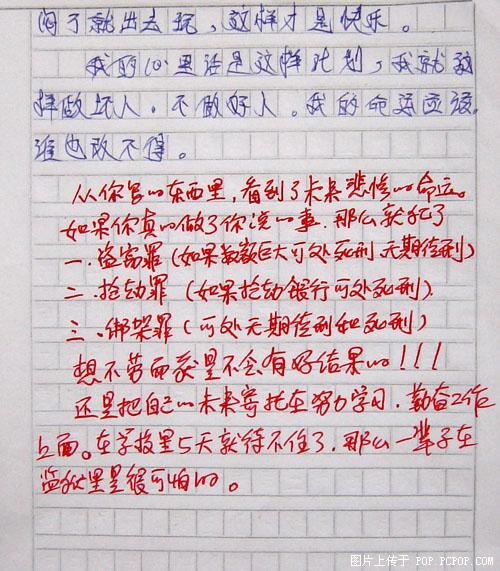 闷了就出去玩，这样才是快乐。
我的心里话是这样计划，我就这
样做坏人，不做好人。我的命运应该
谁也改不得。
从你写的东西里，看到了未来悲惨的命运。
如果你真的做了你说的事，那么就犯了
一.盗窃罪（如果数额巨大可处死刑 无期徒刑）
二.抢劫罪（如果抢劫银行可处死刑）.
三.绑架罪（可处无期徒刑和死刑）
想不劳而获是不会有好结果的！！！
还是把自己的未来寄托在努力学习.勤奋工作
上面。在学校里5天就待不住了，那么一辈子在
监狱里是很可怕的。
图片上传于 POP.PCPOP.COM